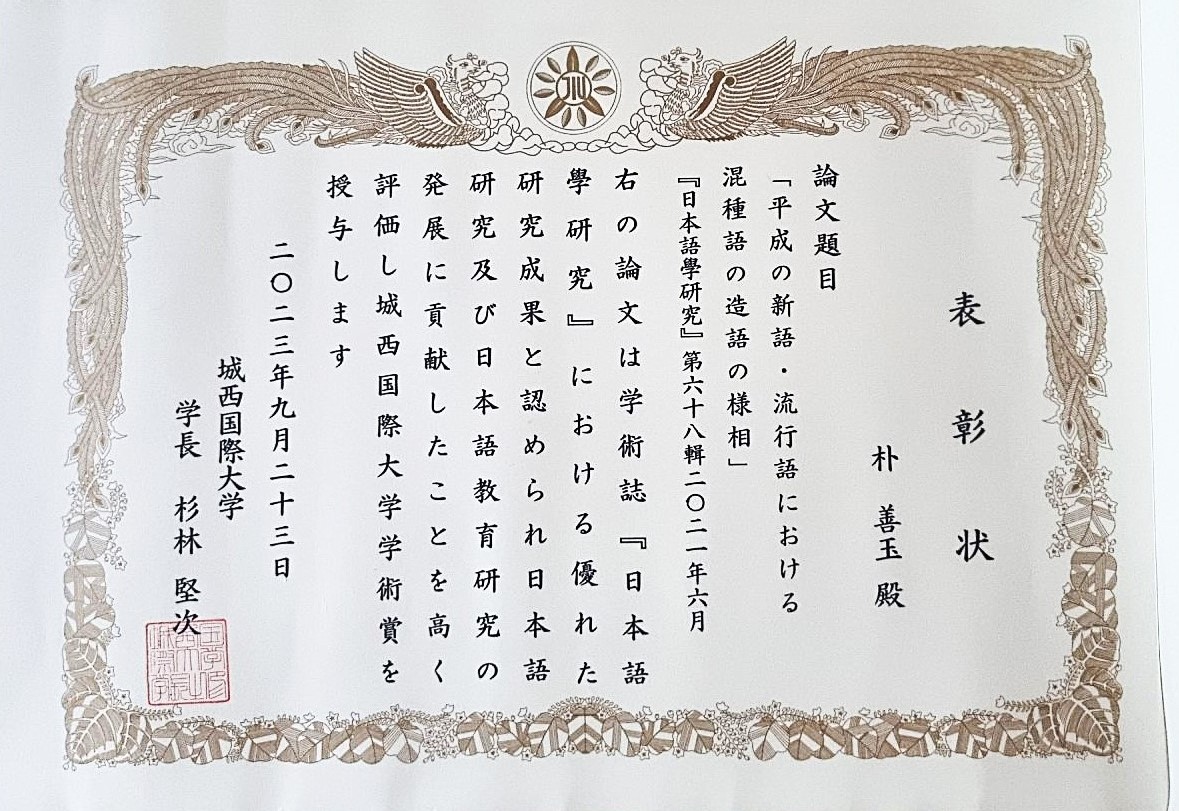 表彰状
朴 善玉 殿
論文題目
「平成の新語・流行語における
混種語の造語の様相」
『日本語學研究』第六十八輯二〇二一年六月
右の論文は学術誌『日本語
學研究』における優れた
研究成果と認められ日本語
研究及び日本語教育研究の
発展に貢献したことを高く
評価し城西国際大学学術賞を
授与します
二〇二三年九月二十三日
城西国際大学
学長 杉林 堅次